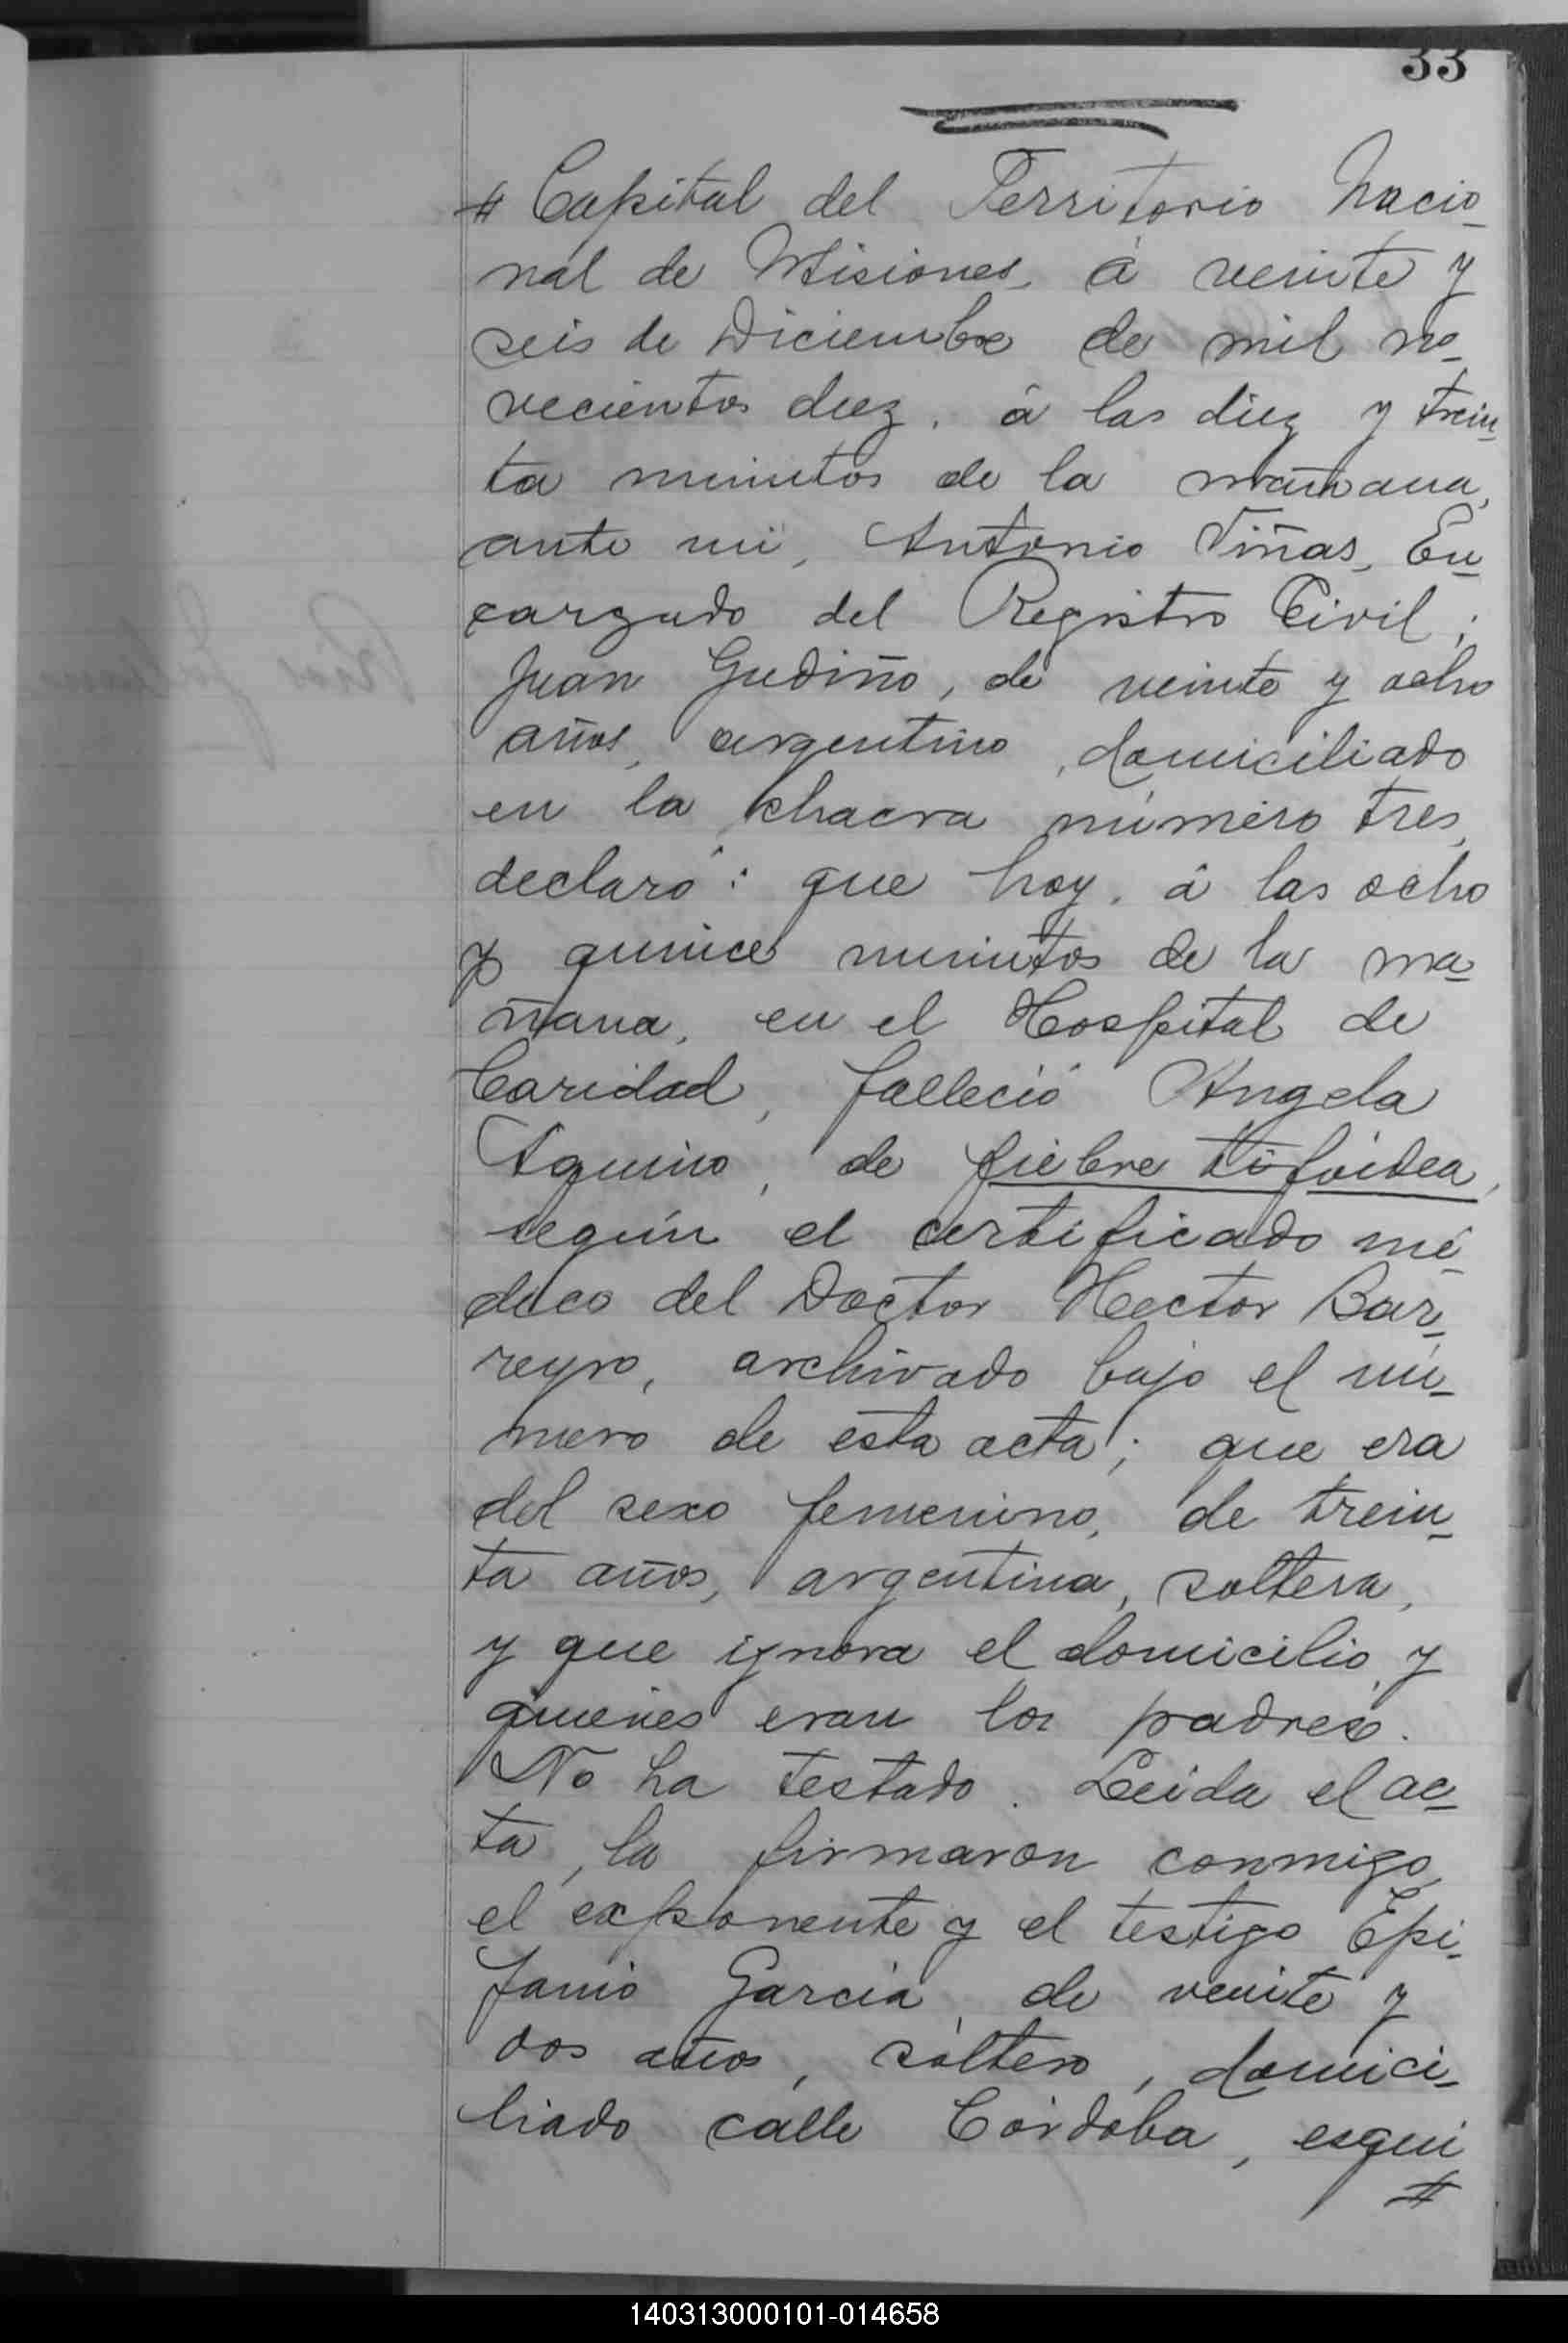 33
# Capital del Territorio Nacio-
nal de Misiones, á veinte y
seis de Diciembre de mil no-
vecientos diez, á las diez y trein-
ta minutos de la mañana,
ante mi, Antonio Viñas, En-
cargado del Registro Civil;
Juan Gudiño, de veinte y ocho
años, argentino, domiciliado
en la chacra número tres,
declaró: que hoy, á las ocho
y quince minutos de la ma-
ñana, en el Hospital de
Caridad, falleció Angela
Aquino, de fiebre tifoidea,
según el certificado mé-
dico del Doctor Hector Bar-
reyro, archivado bajo el nú-
mero de esta acta; que era
del sexo femenino, de trein-
ta años, argentina, soltera,
y que ignora el domicilio y
quienes eran los padres.
No ha testado. Leida el ac-
ta, la firmaron conmigo,
el exponente y el testigo Epi-
fanio Garcia, de veinte y
dos años, soltero, domici-
liado calle Córdoba, esqui
#
140313000101-014658